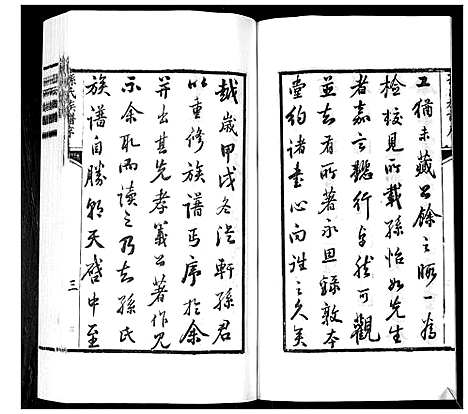 工猶未藏公餘之暇一為
檢校見所載孫怡如先生
者嘉言懿行卓然可觀
並知有所著永思錄敦本
堂約諸書心向往之久矣
越歲甲戌冬從軒孫君
以重修族譜丐序於余
并出其先孝義公著作見
示余取而讀之乃知孫氏
族譜自勝朝天啓中至
孫氏族譜序
三